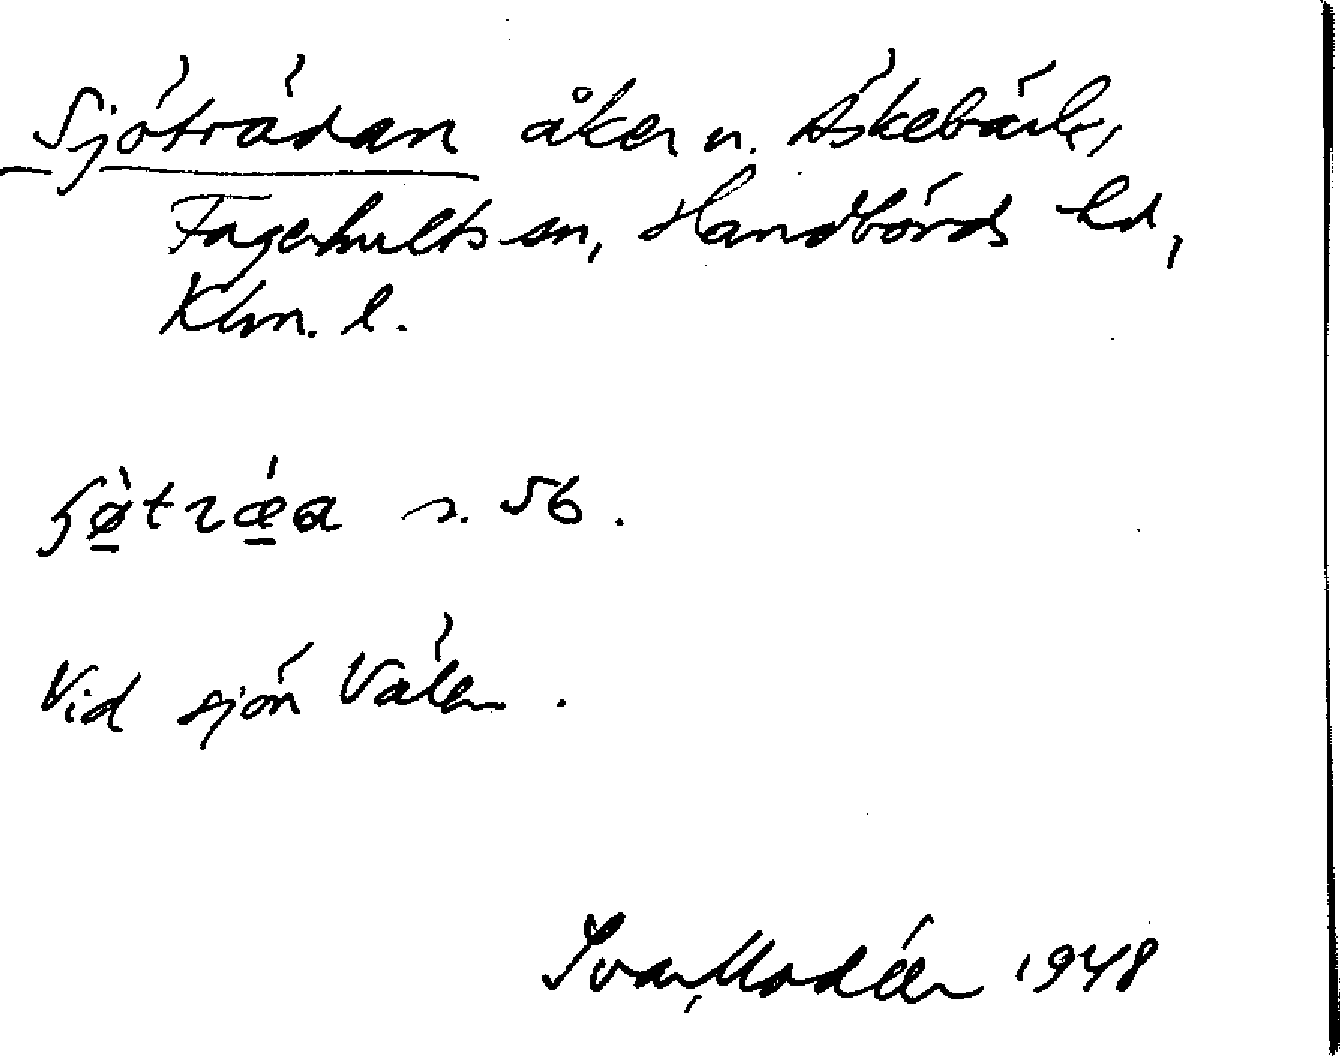 Sjöträdan åker n. Äskebäck,
Fagerhults sn, Handbörds hd,
Klm. l.
sø̠̀trǽ̠a s. 56.
Vid sjön Välen.
Ivar Modéer 1948